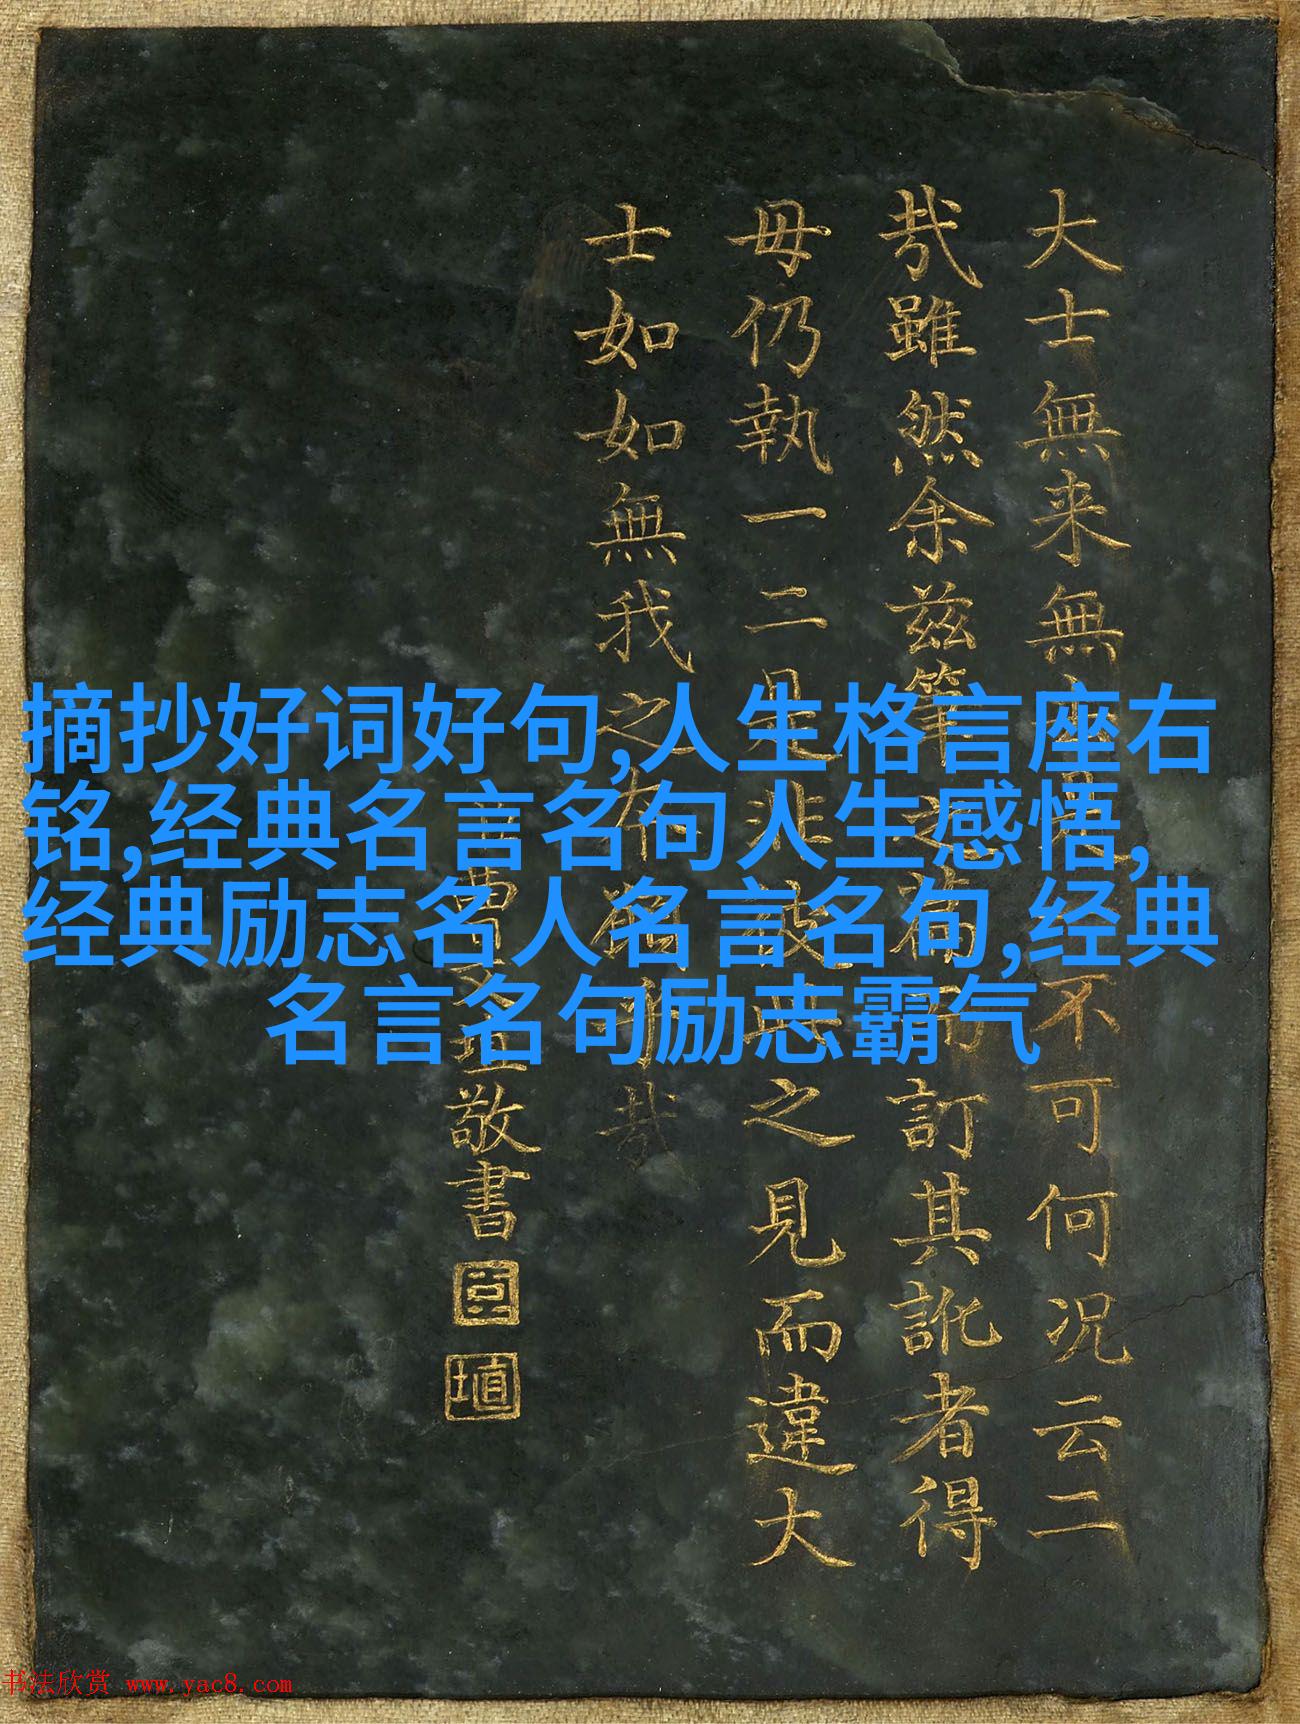 大士無来無去見不可何况云二
哉雖然余兹筆之荷而訂其訛者得
毋仍執一二是非彼此之見而違大
士如如無我之布獨何哉
曹文埴敬書
摘抄好词好句,人生格言座右
铭,经典名言名句人生感悟,
经典励志名人名言名句,经典
名言名句励志霸气
书法欣赏 www.yac8.com